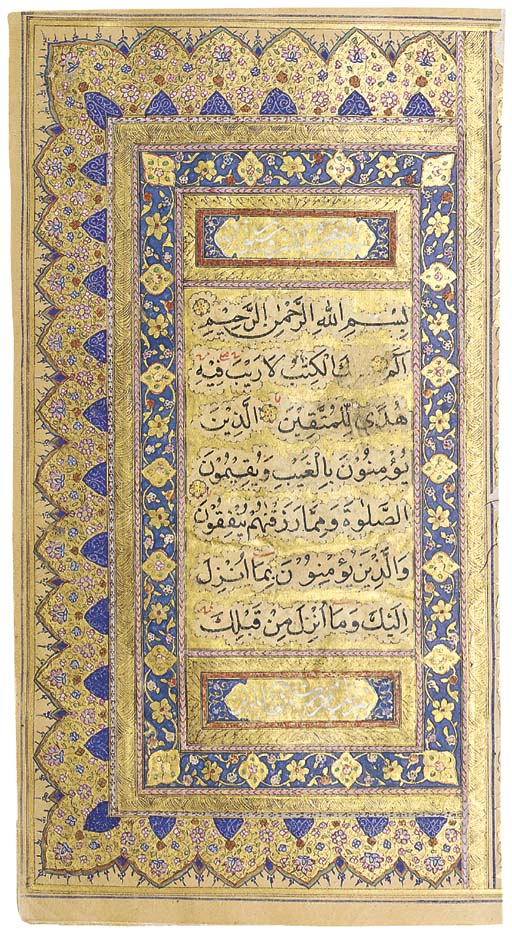 بِسْمِ اللّٰهِ الرَّحْمٰنِ الرَّحِيْمِ
الٓمّٓ الْكِتٰبُ لَا رَيْبَ فِيْهِ
هُدًى لِلْمُتَّقِيْنَ الَّذِيْنَ
يُؤْمِنُوْنَ بِالْغَيْبِ وَيُقِيْمُوْنَ
الصَّلٰوةَ وَمِمَّا رَزَقْنٰهُمْ يُنْفِقُوْنَ
وَالَّذِيْنَ يُؤْمِنُوْنَ بِمَا اُنْزِلَ
اِلَيْكَ وَمَا اُنْزِلَ مِنْ قَبْلِكَ